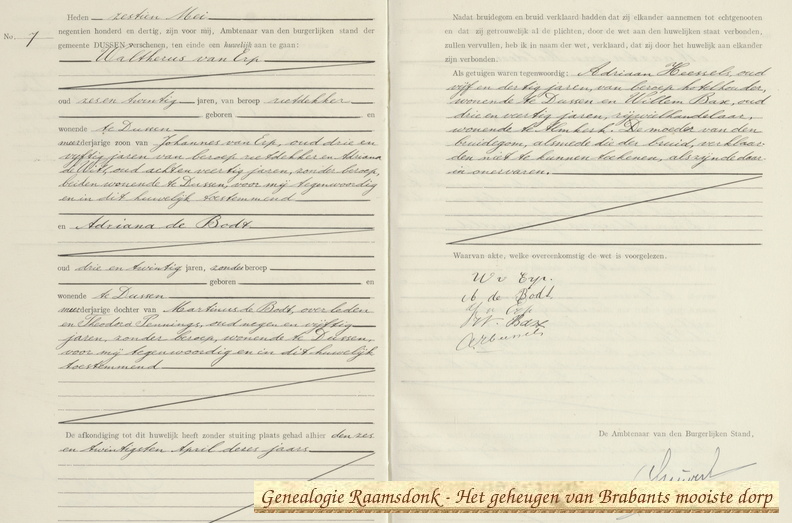 No. 7
Heden zestien Mei
negentien honderd en dertig, zijn voor mij, Ambtenaar van den burgerlijken stand der
gemeente DUSSEN verschenen, ten einde een huwelijk aan te gaan:
Waltherus van Erp
oud zes en twintig jaren, van beroep rietdekker
geboren en
wonende te Dussen
meerderjarige zoon van Johannes van Erp, oud drie en
vijftig jaren van beroep rietdekker en Adriana
de Wit, oud achten veertig jaren, zonder beroep,
beiden wonende te Dussen, voor mij tegenwoordig
en in dit huwelijk toestemmend
en Adriana de Bodt
oud drie en twintig jaren, zonder beroep
geboren en
wonende te Dussen
meerderjarige dochter van Martinus de Bodt, overleden
en Theodora Pennings, oud negen en vijftig
jaren, zonder beroep, wonende te Dussen,
voor mij tegenwoordig en in dit huwelijk
toestemmend
De afkondiging tot dit huwelijk heeft zonder stuiting plaats gehad alhier den zes
en twintigsten April dezes jaars
Nadat bruidegom en bruid verklaard hadden dat zij elkander aannemen tot echtgenooten
en dat zij getrouwelijk al de plichten, door de wet aan den huwelijken staat verbonden,
zullen vervullen, heb ik in naam der wet, verklaard, dat zij door het huwelijk aan elkander
zijn verbonden.
Als getuigen waren tegenwoordig: Adriaan Heesels, oud
vijf en dertig jaren, van beroep hotelhouder,
wonende te Dussen en Willem Bax, oud
drie en veertig jaren, rijwielhandelaar,
wonende te Almkerk. De moeder van den
bruidegom, alsmede die der bruid, verklaar
den niet te kunnen teekenen, als zijnde daar
in onervaren.
Waarvan akte, welke overeenkomstig de wet is voorgelezen.
W v Erp.
A. de Bodt
J v Erp
W. Bax
De Ambtenaar van den Burgerlijken Stand,
Genealogie Raamsdonk - Het geheugen van Brabants mooiste dorp